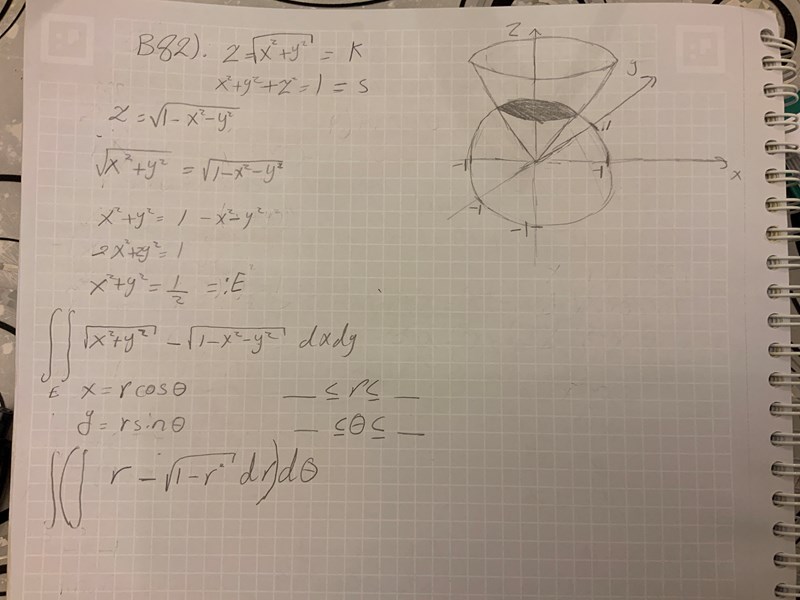 B82). z = √(x²+y²) = K
x²+y²+z² = 1 = S
z = √(1-x²-y²)
√(x²+y²) = √(1-x²-y²)
x²+y² = 1 - x²-y²
2x²+2y² = 1
x²+y² = 1/2 =: E
∬ √(x²+y²) - √(1-x²-y²) dxdy
E
x = r cosθ __ ≤ r ≤ __
y = r sinθ __ ≤ θ ≤ __
∫(∫ r - √(1-r²) dr)dθ
z
y
1
-1
-1
x
-1
-1